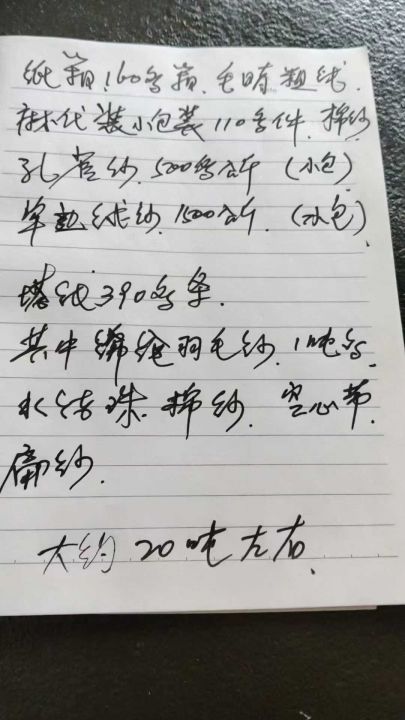 纸箱160多箱.毛晴粗线.
麻代装小包装110多件.棉纱
孔雀纱.500多公斤(小包)
单边绒纱.1500公斤.(小包)
塔线390多条.
其中绳绒羽毛纱.1吨多
水结珠.棉纱.空心带.
扁纱.
大约20吨左右.